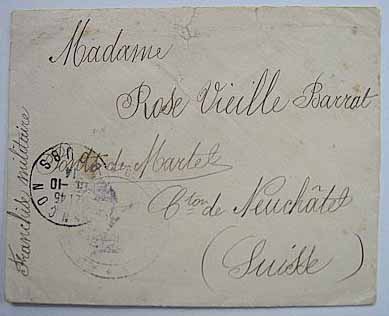 Madame
Rose Vieille Barrat
Ponts de Martel
Cton de Neuchâtel
(Suisse)
Franchise militaire